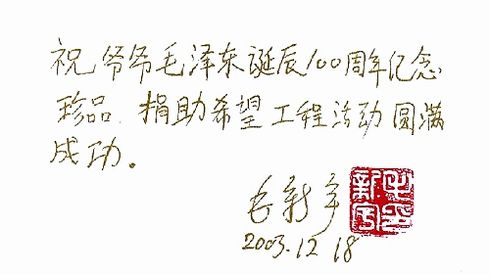 祝爷爷毛泽东诞辰100周年纪念
珍品 捐助希望工程活动圆满
成功。
毛新宇
2003.12 18
毛新宇印